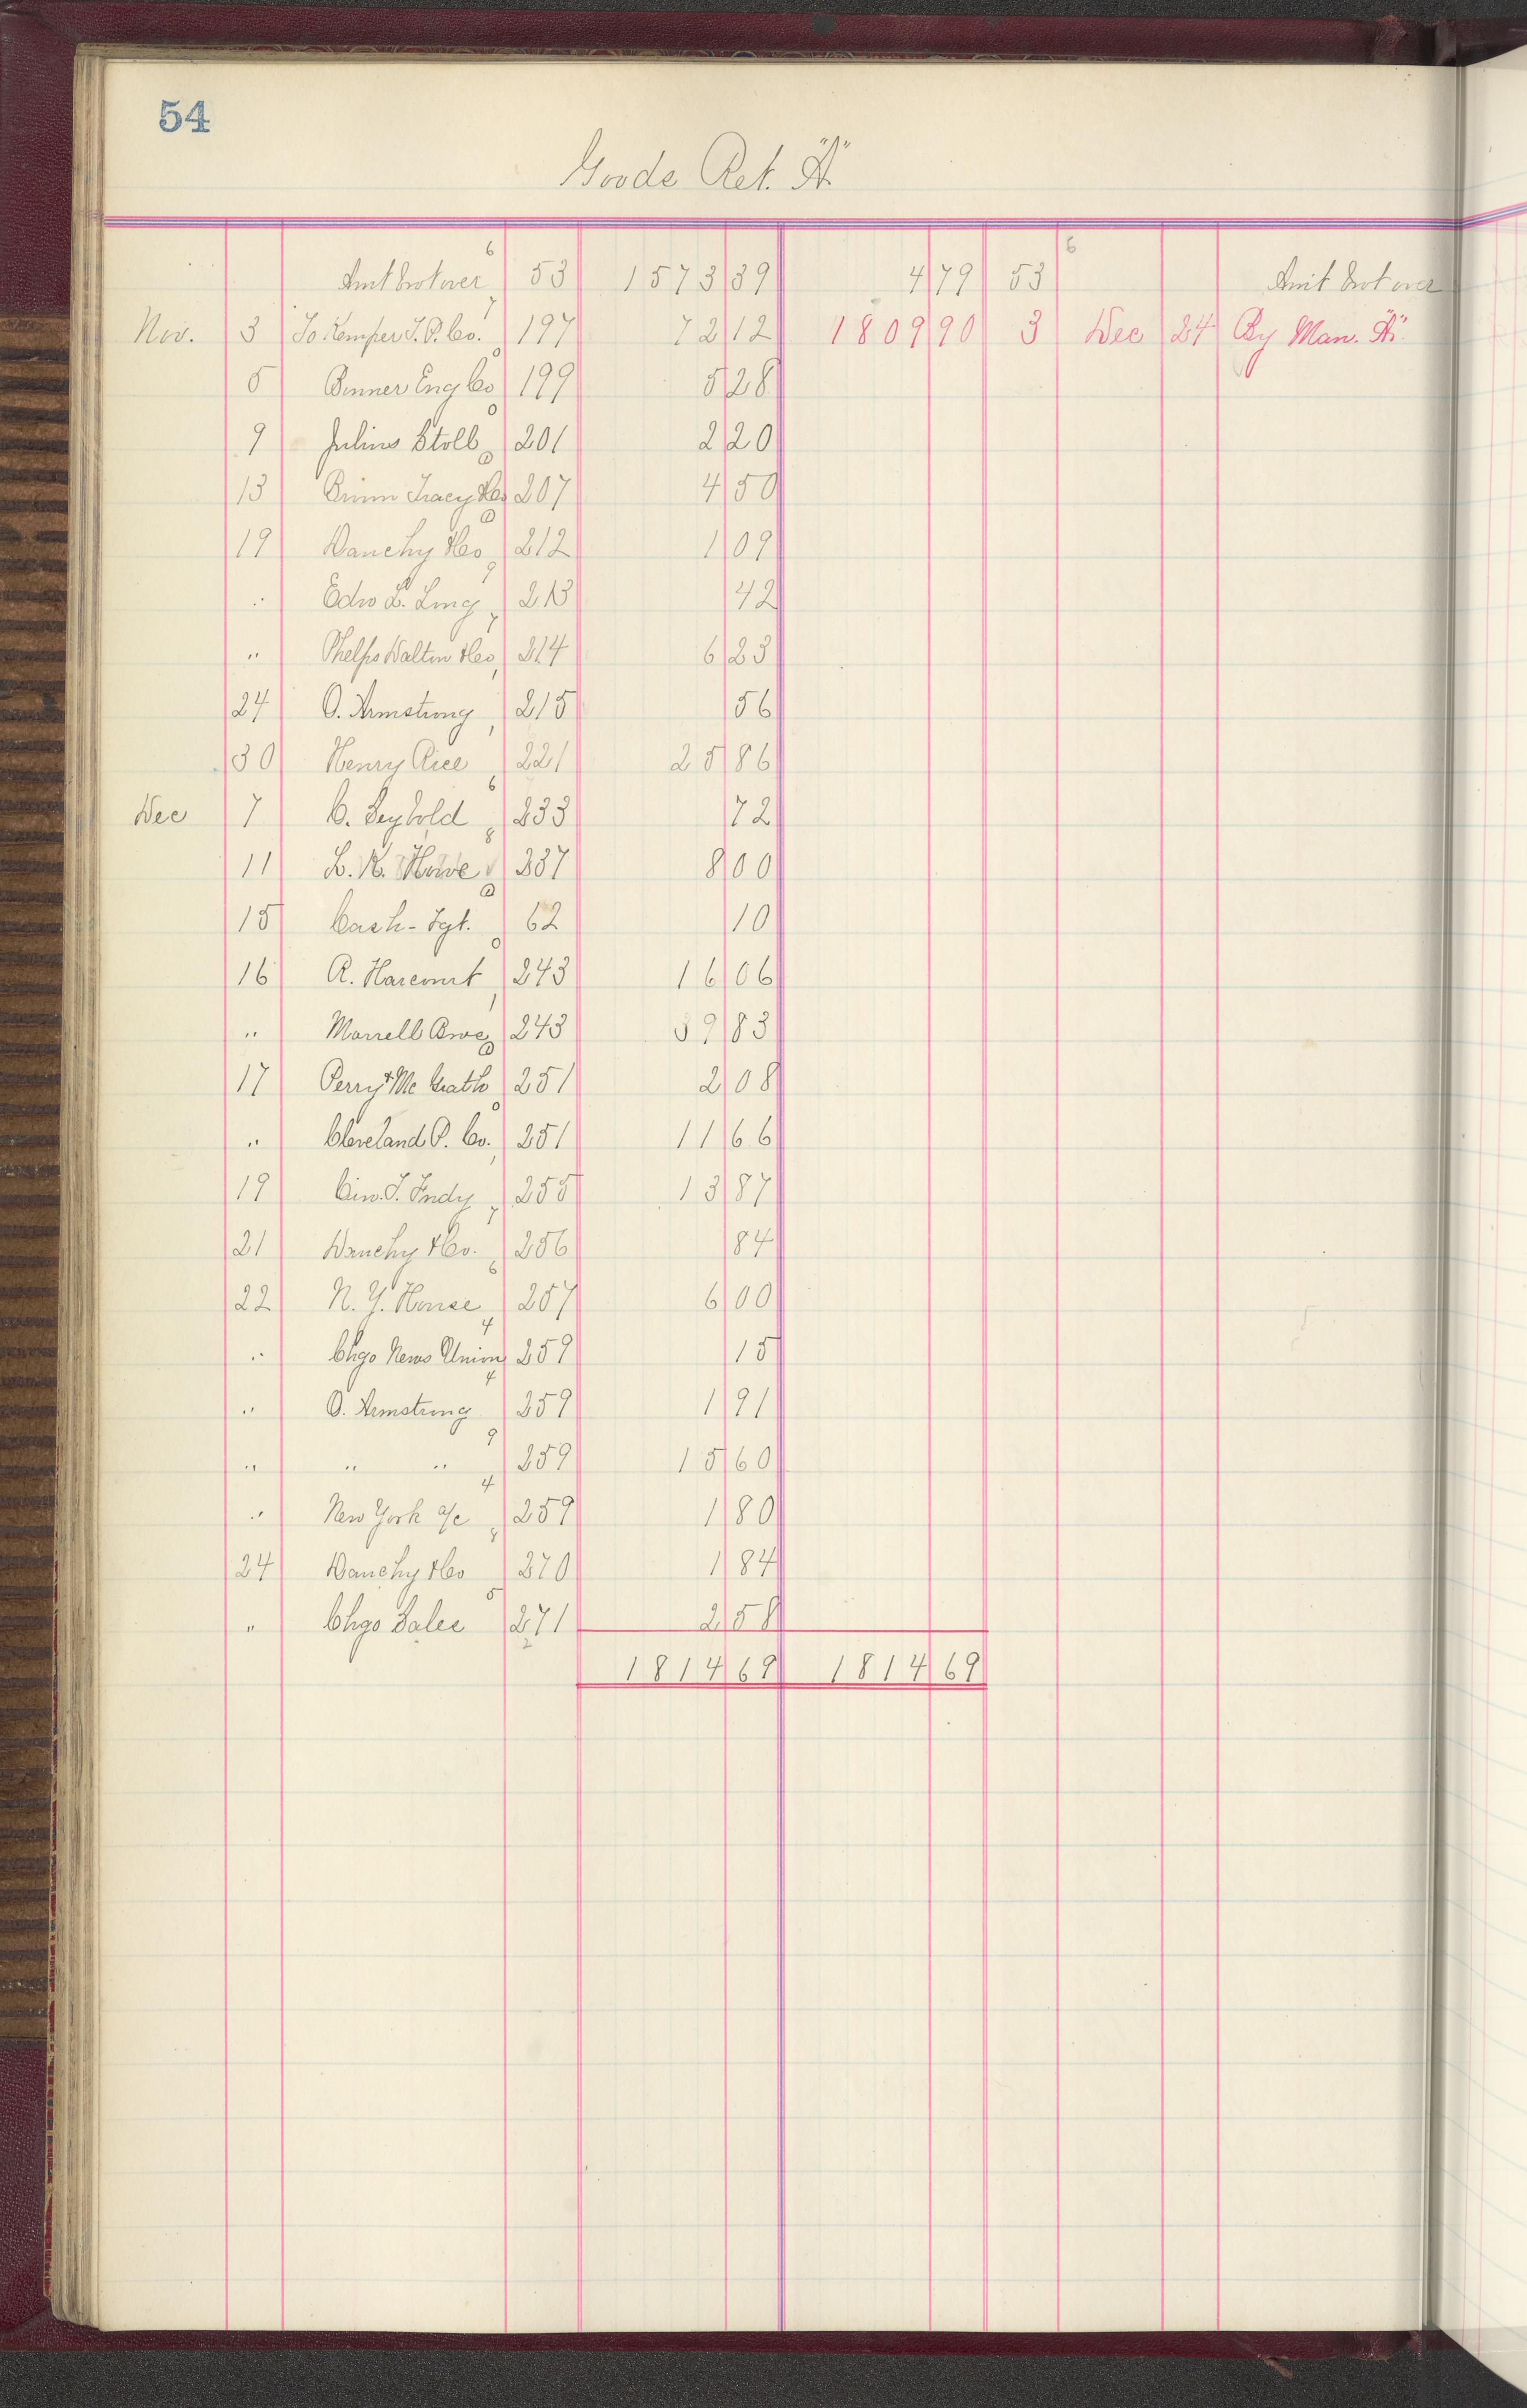 54
Goods Ret. "A"
6 6
Amt brot over 53 1573 39 4 79 53 Amt brot over
Nov. 3 To Kemper T. P. Co. 197 72 12 1809 90 3 Dec 24 By Man. "A"
5 Benner Eng Co 199 5 28
9 Julius Stoll 201 2 20
13 Tracy &Co 207 4 50
19 Danchy &Co 212 1 09
" Edw L. Ling 213 42
" Phelps Dalton &Co 214 6 23
24 O. Armstrong 215 56
30 Henry Rice 221 25 86
Dec 7 C. Seybold 233 72
11 L. R. Howe 237 8 00
15 Cash - Fgt. 62 10
16 R. Harcourt 243 16 06
" Morrell Bros 243 39 83
17 Perry & McGrath 251 2 08
" Cleveland P. Co. 251 11 66
19 Cin. T. Fndy 255 13 87
21 Danchy &Co. 256 84
22 N. Y. House 257 6 00
" Chgo News Union 259 15
" O. Armstrong 259 1 91
" " " 259 15 60
" New York a/c 259 1 80
24 Danchy &Co 270 1 84
" Chgo Sales 271 2 58
1814 69 1814 69